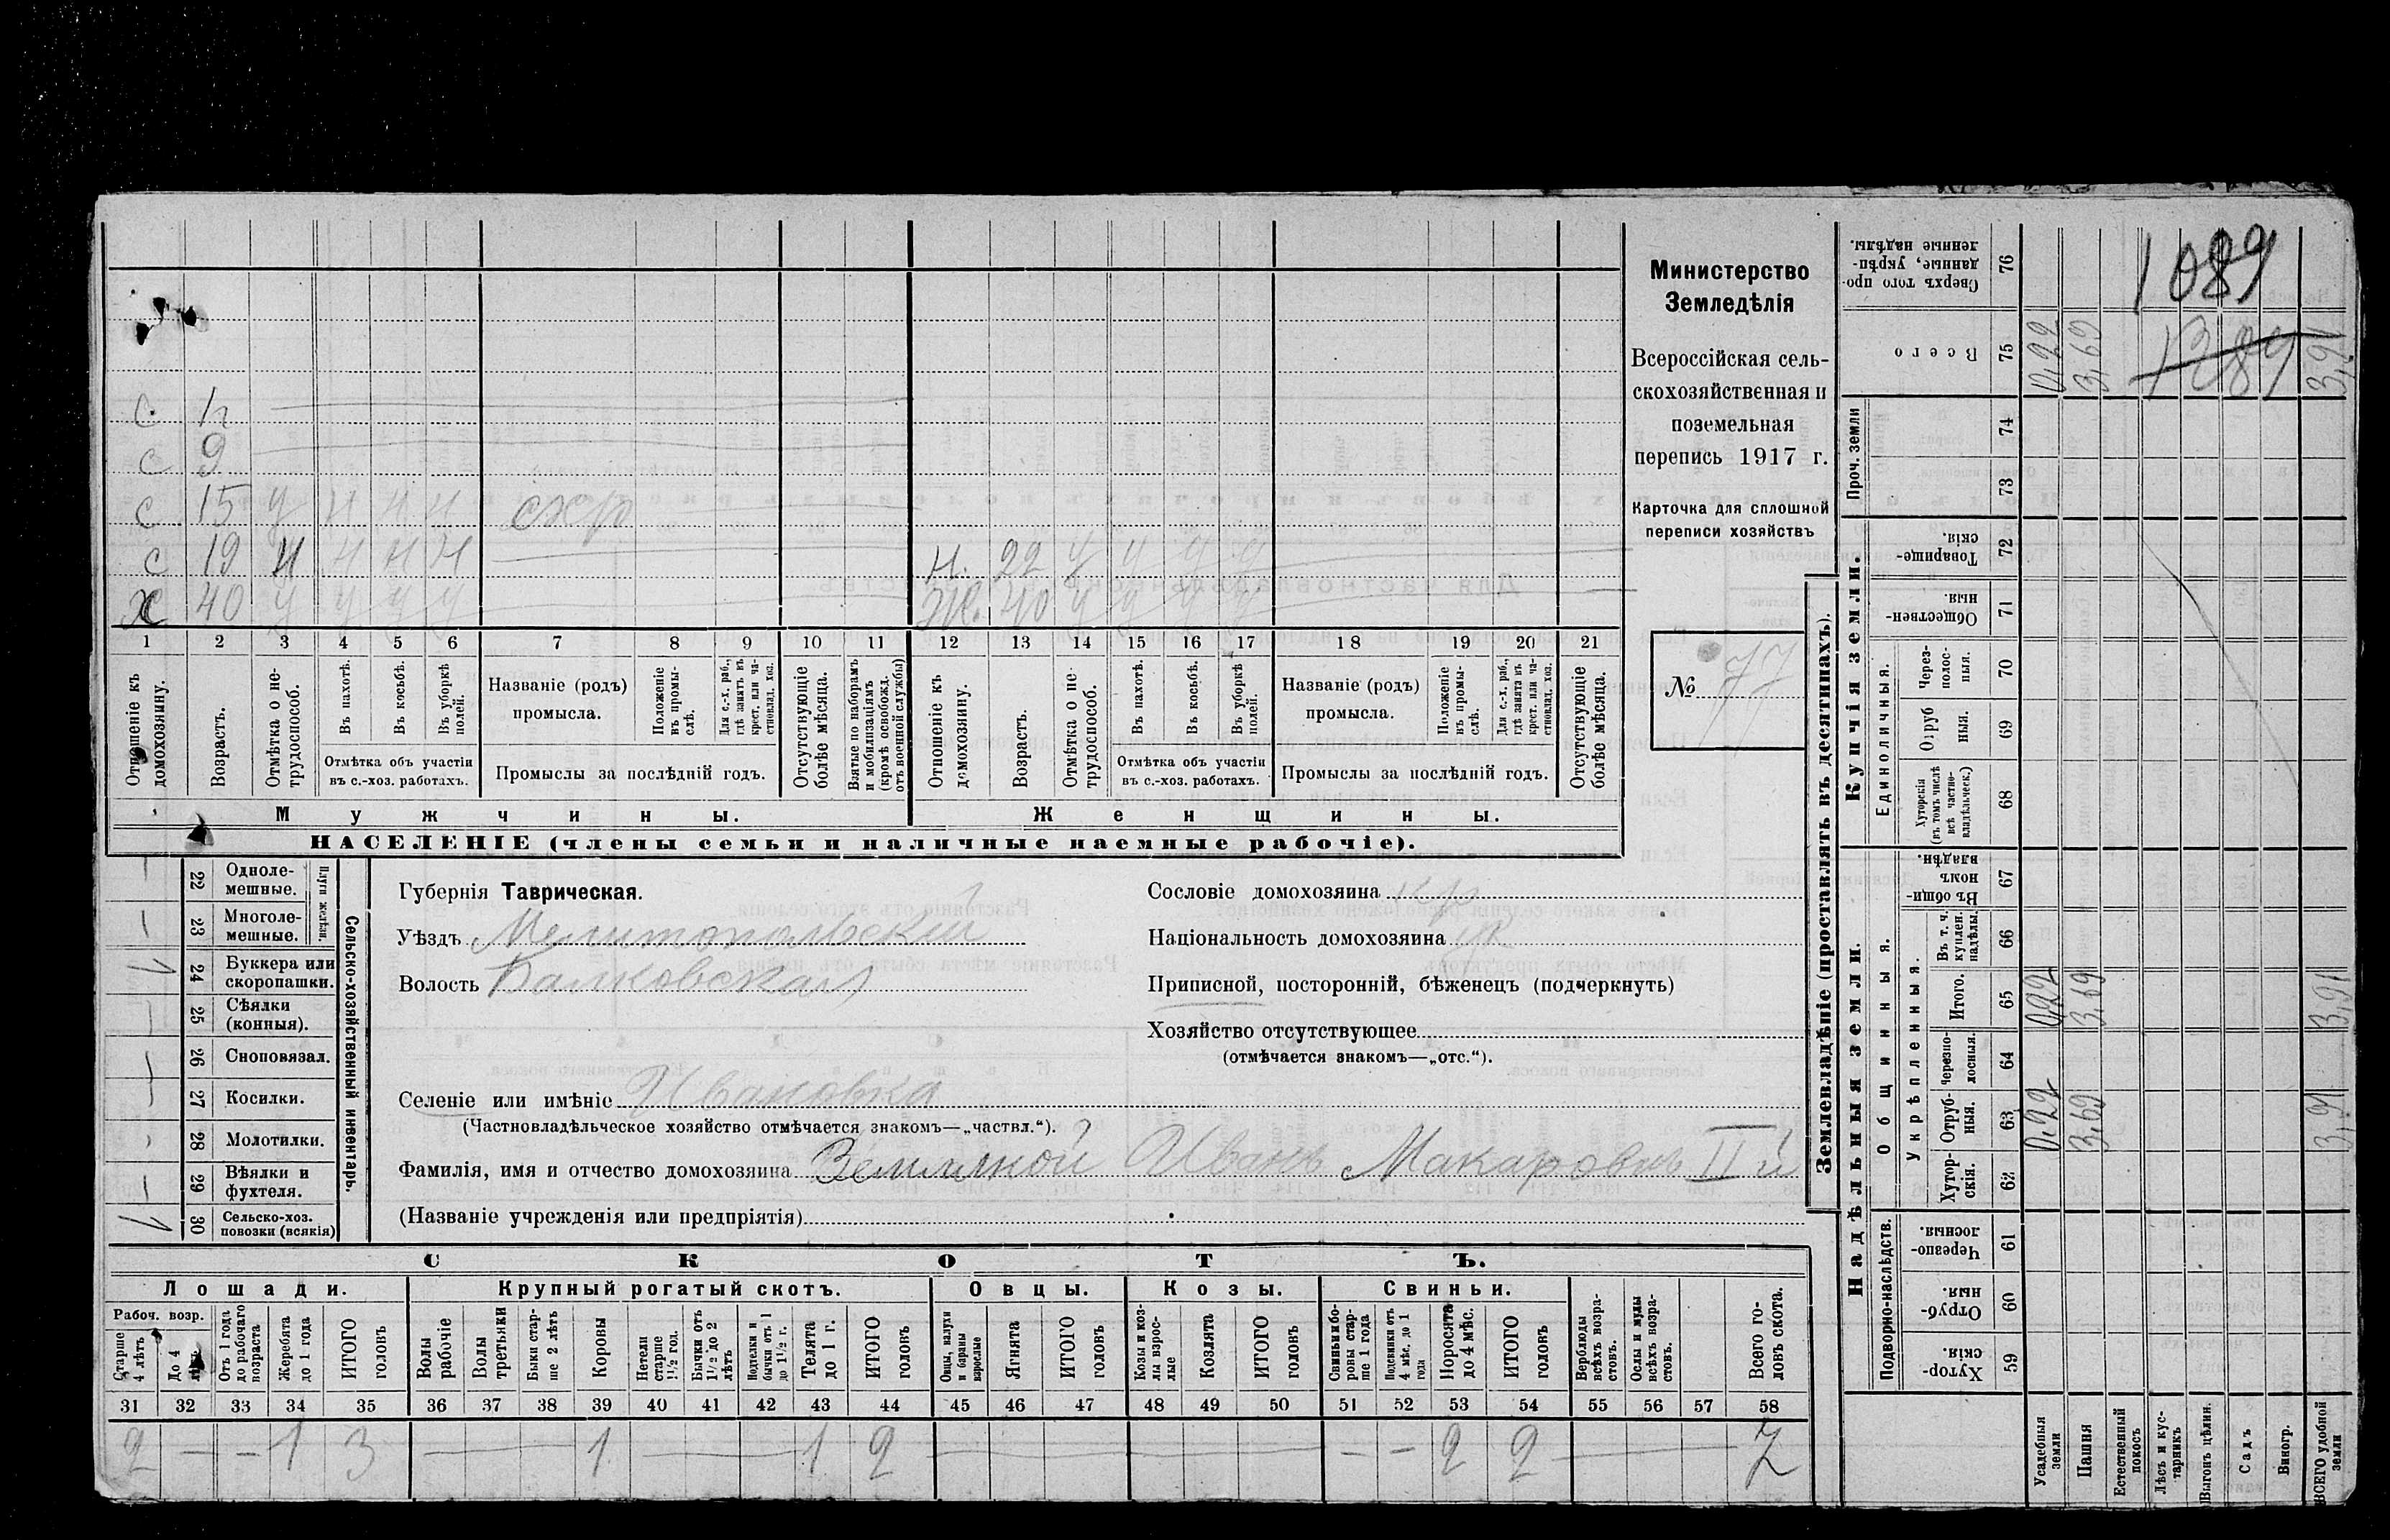 с. 4
с 9
с 15 у н н н схр
с 19 н н н н
н. 22 у у у у
х 40 у у у у
ж. 40 у у у у
1 2 3 4 5 6 7 8 9 10 11 12 13 14 15 16 17 18 19 20 21
Отношеніе къ домохозяину.
Возрастъ.
Отмѣтка о не-
трудоспособ.
Въ пахотѣ.
Въ косьбѣ.
Въ уборкѣ полей.
Отмѣтка объ участіи
въ с.-хоз. работахъ.
Названіе (родъ)
промысла.
Положеніе въ промы-
слѣ.
Для с.-х. раб., гдѣ занятъ въ крест. или ча-
стновлад. хоз.
Промыслы за послѣдній годъ.
Отсутствующіе болѣе мѣсяца.
Взятые по наборамъ и мобилизаціямъ (кромѣ освобожд. отъ военной службы)
Отношеніе къ домохозяину.
Возрастъ.
Отмѣтка о не-
трудоспособ.
Въ пахотѣ.
Въ косьбѣ.
Въ уборкѣ полей.
Отмѣтка объ участіи
въ с.-хоз. работахъ.
Названіе (родъ)
промысла.
Положеніе въ промы-
слѣ.
Для с.-х. раб., гдѣ занята въ крест. или ча-
стновлад. хоз.
Промыслы за послѣдній годъ.
Отсутствующіе болѣе мѣсяца.
Мужчины.
Женщины.
НАСЕЛЕНІЕ (члены семьи и наличные наемные рабочіе).
Министерство
Земледѣлія
Всероссійская сель-
скохозяйственная и
поземельная
перепись 1917 г.
Карточка для сплошной
переписи хозяйствъ
№ 77
22 Одноле-
мешные.
23 Многоле-
мешные.
Плуги желѣзн.
24 Буккера или
скоропашки.
25 Сѣялки
(конныя).
26 Сноповязал.
27 Косилки.
28 Молотилки.
29 Вѣялки и
фухтеля.
30 Сельско-хоз.
повозки (всякія)
Сельско-хозяйственный инвентарь.
Губернія Таврическая.
Уѣздъ Мелитопольскій
Волость Балковская
Сословіе домохозяина кр
Національность домохозяина
Приписной, посторонній, бѣженецъ (подчеркнуть)
Хозяйство отсутствующее
(отмѣчается знакомъ—„отс.“).
Селеніе или имѣніе Ивановка
(Частновладѣльческое хозяйство отмѣчается знакомъ—„частвл.“).
Фамилія, имя и отчество домохозяина Земляной Иванъ Макаровъ II й
(Названіе учрежденія или предпріятія)
СКОТЪ.
Лошади.
Крупный рогатый скотъ.
Овцы.
Козы.
Свиньи.
Рабоч. возр.
Старше 4 лѣтъ
До 4 лѣтъ
Отъ 1 года до рабочаго возраста
Жеребята до 1 года
ИТОГО головъ
Волы рабочіе
Волы третьяки
Быки стар-
ше 2 лѣтъ
Коровы
Нетели старше 1½ год.
Бычки отъ 1½ до 2 лѣтъ
Подтелки и бычки отъ 1 до 1½ г.
Телята до 1 г.
ИТОГО головъ
Овцы, валухи и бараны взрослые
Ягнята
ИТОГО головъ
Козы и коз-
лы взрос-
лые
Козлята
ИТОГО головъ
Свиньи и бо-
ровы стар-
ше 1 года
Подсвинки отъ 4 мѣс. до 1 года
Поросята до 4 мѣс.
ИТОГО головъ
Верблюды всѣхъ возра-
стовъ.
Ослы и мулы всѣхъ возра-
стовъ.
Всего го-
ловъ скота.
31 32 33 34 35 36 37 38 39 40 41 42 43 44 45 46 47 48 49 50 51 52 53 54 55 56 57 58
2 — — 1 3 — 1 — 1 2 — — — 2 2 — 7
Землевладѣніе (проставлять въ десятинахъ).
Надѣльныя земли.
Купчія земли.
Проч. земли
Сверхъ того про-
данные, укрѣп-
ленные надѣлы.
76
1089
Всего
75
0,22 3,69 1289 3,91
74
73
Товарище-
скія.
72
Обществен-
ныя.
71
Единоличныя.
Через-
полос-
ныя.
70
Отруб
ныя.
69
Хуторскія
(въ томъ числѣ
всѣ частно-
владѣльческ.)
68
Общинныя.
Въ общи-
номъ
владѣн.
67
Укрѣпленныя.
Въ т. ч.
куплен.
надѣлы.
66
Итого.
65
0,22 3,69 3,91
Черезпо-
лосныя.
64
Отруб-
ныя.
63
0,22 3,69 3,91
Хутор-
скія.
62
Подворно-наслѣдств.
Черезпо-
лосныя.
61
Отруб-
ныя.
60
Хутор-
скія.
59
Усадебныя земли
Пашня
Естественный покосъ
Лѣсъ и кус-
тарникъ
Выгонъ цѣлин.
Садъ
Виногр.
ВСЕГО удобной земли